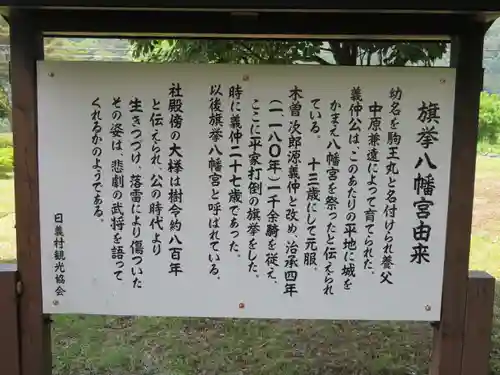 旗挙八幡宮由来
幼名を駒王丸と名付けられ養父
中原兼遠によって育てられた。
義仲公は、このあたりの平地に城を
かまえ八幡宮を祭ったと伝えられ
ている。 十三歳にして元服
木曽次郎源義仲と改め、治承四年
(一一八〇年)一千余騎を従え、
ここに平家打倒の旗挙をした。
時に義仲二十七歳であった。
以後旗挙八幡宮と呼ばれている。
社殿傍の大欅は樹令約八百年
と伝えられ、公の時代より
生きつづけ、落雷により傷ついた
その姿は、悲劇の武将を語って
くれるかのようである。
日義村観光協会